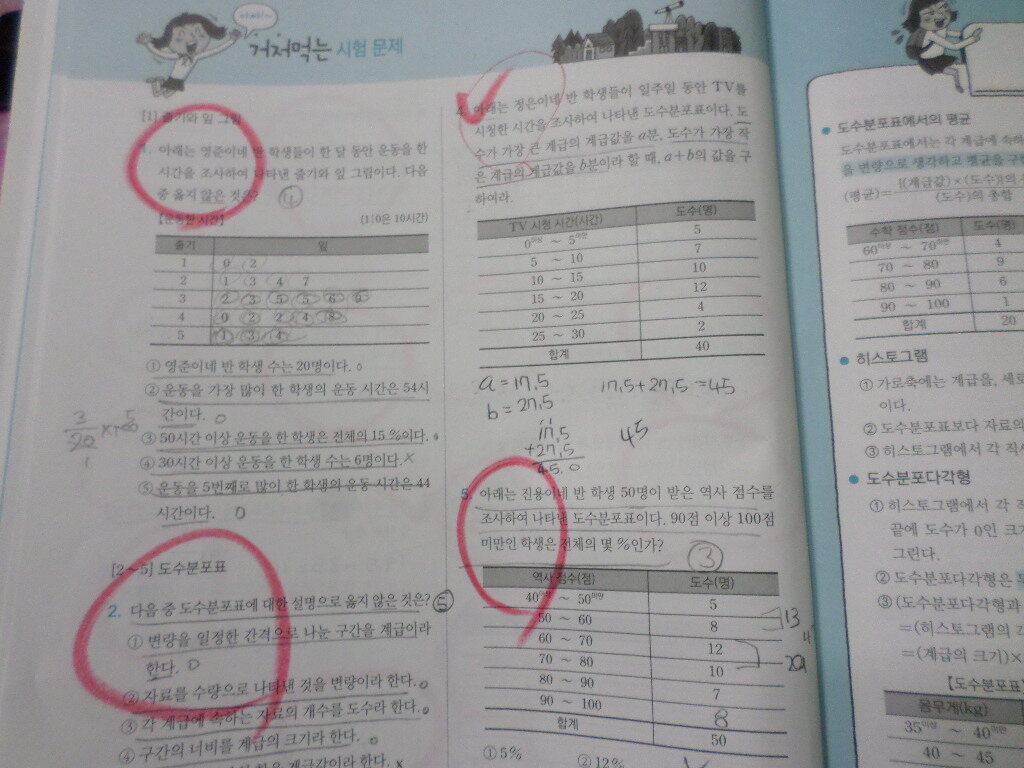 아싸~
거저먹는 시험 문제
[1] 줄기와 잎 그림
1. 아래는 영준이네 반 학생들이 한 달 동안 운동을 한
시간을 조사하여 나타낸 줄기와 잎 그림이다. 다음
중 옳지 않은 것은? ④
【운동한 시간】 (1|0은 10시간)
줄기 잎
1 0 2
2 1 3 4 7
3 2 3 5 5 6
4 0 2 2 4 8
5 1 3 4
① 영준이네 반 학생 수는 20명이다. o
② 운동을 가장 많이 한 학생의 운동 시간은 54시
간이다. o
③ 50시간 이상 운동을 한 학생은 전체의 15 %이다. o
④ 30시간 이상 운동을 한 학생 수는 6명이다. x
⑤ 운동을 5번째로 많이 한 학생의 운동 시간은 44
시간이다. o
3
20
[2~5] 도수분포표
2. 다음 중 도수분포표에 대한 설명으로 옳지 않은 것은? ⑤
① 변량을 일정한 간격으로 나눈 구간을 계급이라
한다. o
② 자료를 수량으로 나타낸 것을 변량이라 한다. o
③ 각 계급에 속하는 자료의 개수를 도수라 한다. o
④ 구간의 너비를 계급의 크기라 한다. o
4. 아래는 정은이네 반 학생들이 일주일 동안 TV를
시청한 시간을 조사하여 나타낸 도수분포표이다. 도
수가 가장 큰 계급의 계급값을 a분, 도수가 가장 작
은 계급의 계급값을 b분이라 할 때, a+b의 값을 구
하여라.
TV 시청 시간(시간) 도수(명)
0이상 ~ 5미만 5
5 ~ 10 7
10 ~ 15 10
15 ~ 20 12
20 ~ 25 4
25 ~ 30 2
합계 40
a = 17.5 17.5+27.5 =45
b = 27.5
17.5
+27.5
45.0
45
5. 아래는 진용이네 반 학생 50명이 받은 역사 점수를
조사하여 나타낸 도수분포표이다. 90점 이상 100점
미만인 학생은 전체의 몇 %인가? ③
역사 점수(점) 도수(명)
40이상 ~ 50미만 5
50 ~ 60 8
60 ~ 70 12
70 ~ 80 10
80 ~ 90 7
90 ~ 100 8
합계 50
13
① 5% ② 12%
도수분포표에서의 평균
도수분포표에서는 각 계급에 속하
을 변량으로 생각하고 평균을 구
(평균)= {(계급값)×(도수)}의
(도수)의 총합
수학 점수(점) 도수(명)
60이상 ~ 70미만 4
70 ~ 80 9
80 ~ 90 6
90 ~ 100 1
합계 20
히스토그램
① 가로축에는 계급을, 세로
이다.
② 도수분포표보다 자료의
③ 히스토그램에서 각 직
도수분포다각형
① 히스토그램에서 각
끝에 도수가 0인 크
그린다.
② 도수분포다각형은
③ (도수분포다각형과
=(히스토그램의
=(계급의 크기)×
【도수분포표
몸무게(kg)
35이상 ~ 40미만
40 ~ 45